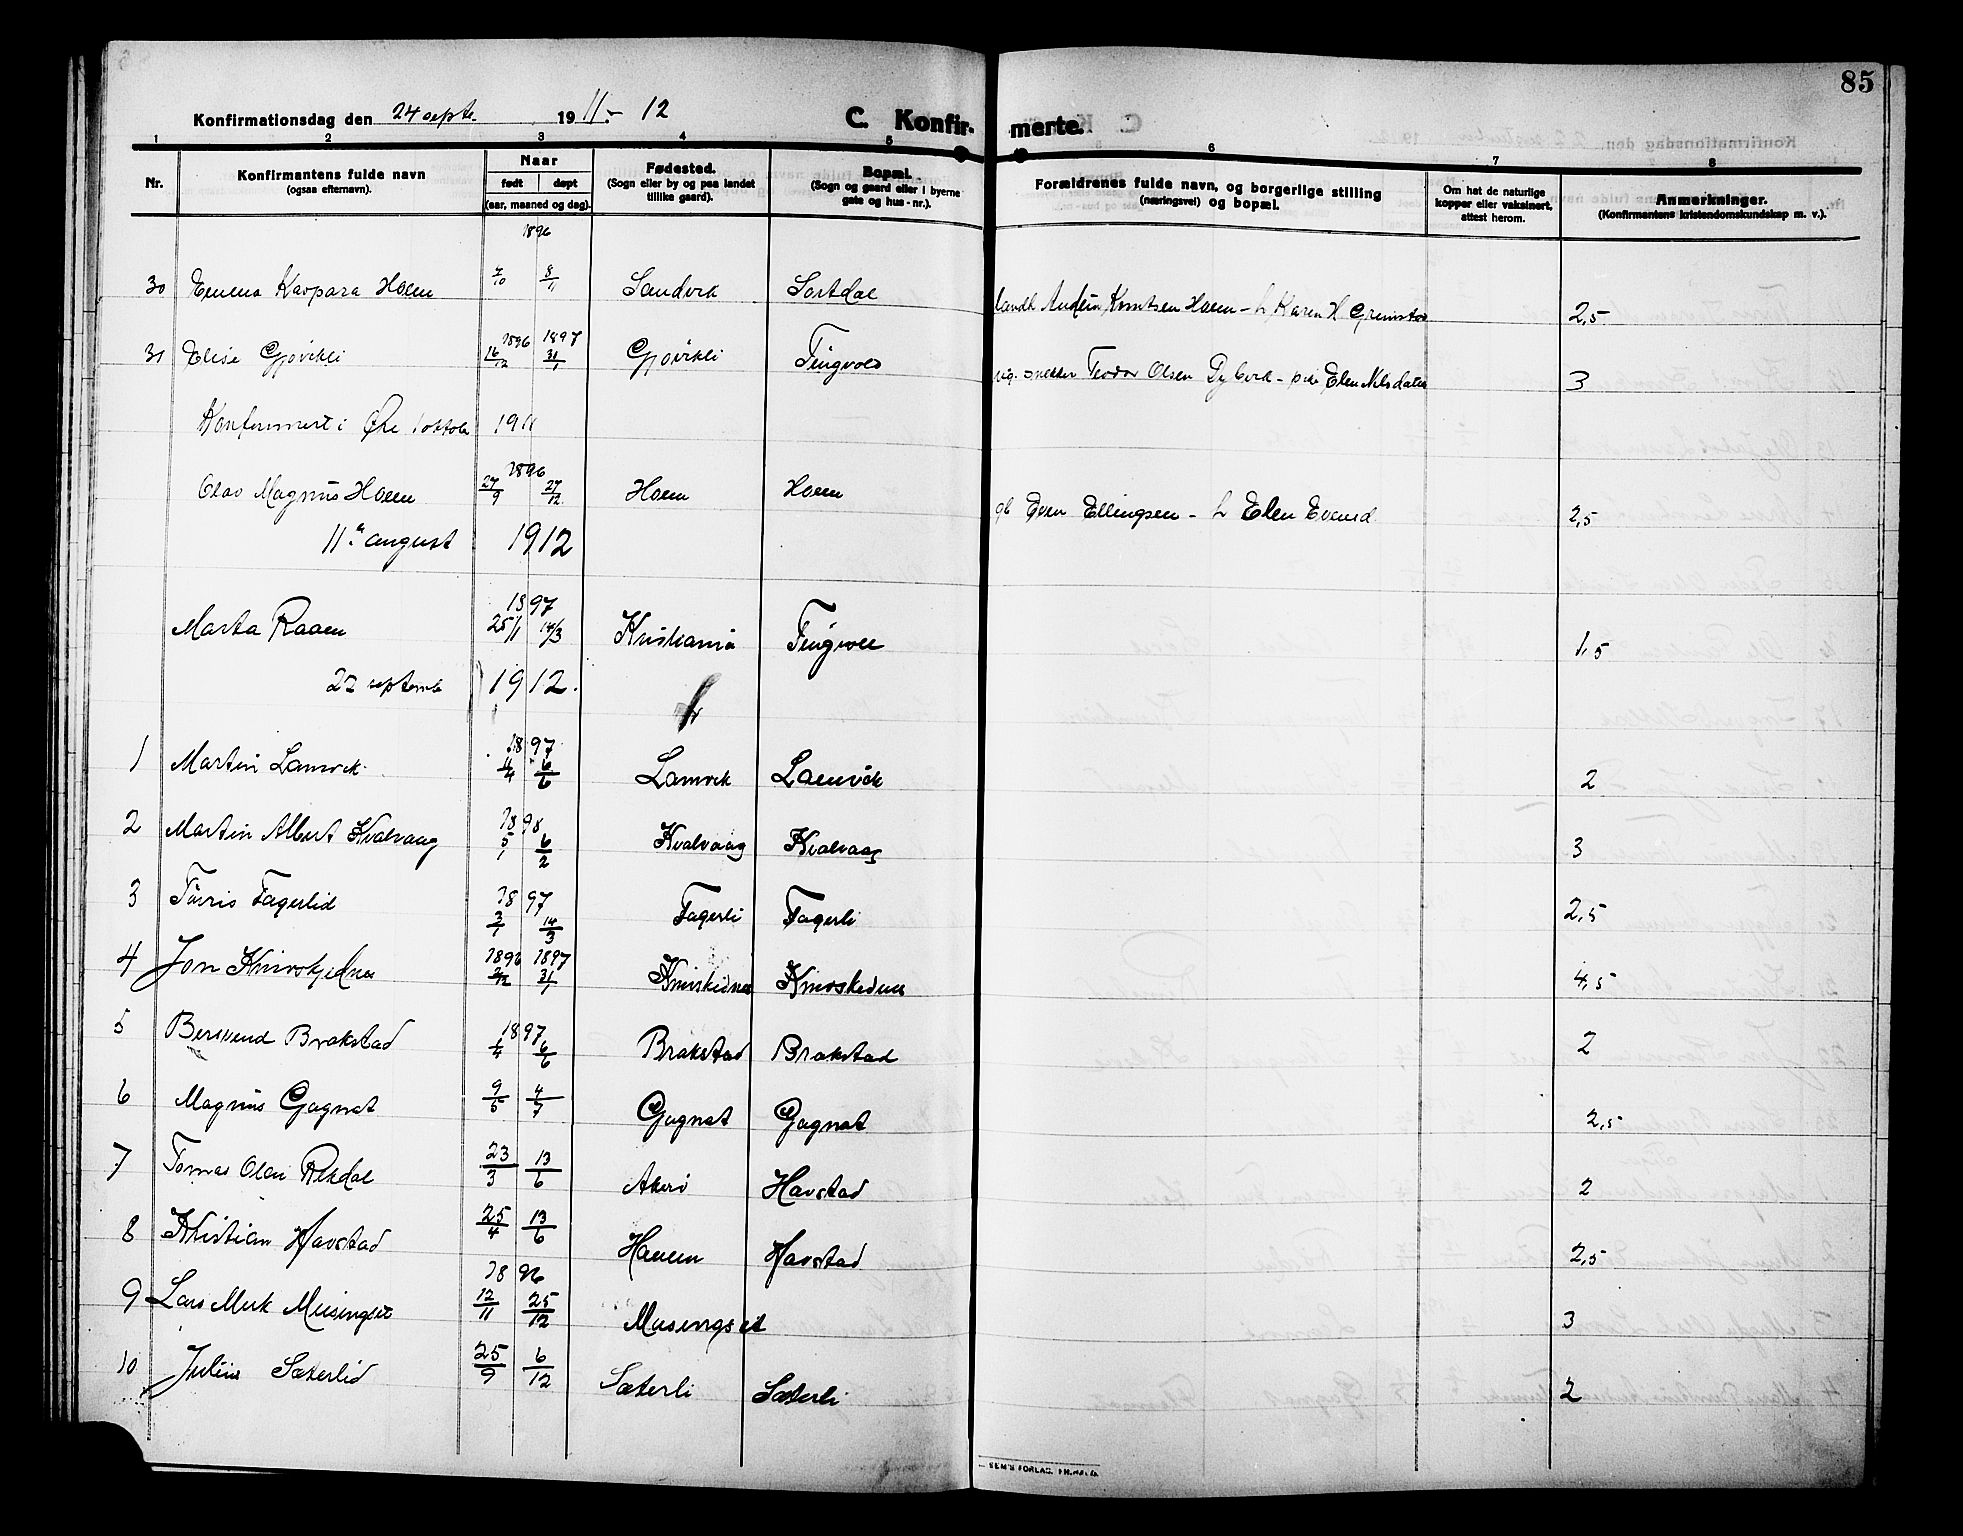 85
Konfirmationsdag den 24 septr. 1911 - 12
C. Konfirmerte.
1 2 3 4 5 6 7 8
Nr. Konfirmantens fulde navn (ogsaa efternavn). Naar født døpt (aar, maaned og dag). Fødested. (Sogn eller by og paa landet tillike gaard). Bopæl. (Sogn og gaard eller i byerne gate og hus-nr.). Forældrenes fulde navn, og borgerlige stilling (næringsvei) og bopæl. Om hat de naturlige kopper eller vaksinert, attest herom. Anmerkninger. (Konfirmantens kristendomskundskap m. v.).
1896
30 Kaspara Hoem 7/10 8/11 Sandvik Knutsen Hoem - h Karen H 2,5
1896 1897
31 Elise Gjøvikli 16/12 31/1 Gjøvikli Tingvold Olsen - Elen Nilsdatter 3
Konfirmert i Øre 1 oktob 1911
1896
Olav Magnus Hoem 27/9 27/12 Hoem Hoem Even Ellingsen - h Elen Evensd 2,5
11te august 1912
1897
Marta Raaen 25/1 14/3 Kristiania Tingvoll 1,5
22 septemb 1912.
1897
1 Martin Lamvik 11/4 6/6 Lamvik Lamvik 2
1898
2 Martin Albert Kvalvaag 5/1 6/2 Kvalvaag Kvalvaag 3
1897
3 Fagerlid 3/1 14/3 Fagerli Fagerli 2,5
1896 1897
4 Jon 31/1 4,5
1897
5 Bersvend Brakstad 1/4 6/6 Brakstad Brakstad 2
6 Magnus Gagnat 9/5 4/7 Gagnat Gagnat 2,5
7 Tomas Olai Rekdal 23/3 13/6 Akerø Havstad 2
8 Kristian Havstad 25/4 13/6 Havstad 2,5
1896
9 Lars Musingset 12/11 25/12 Musingset 3
10 Julius Sæterlid 25/9 6/12 Sæterli Sæterli 2
SEM'S FORLAG